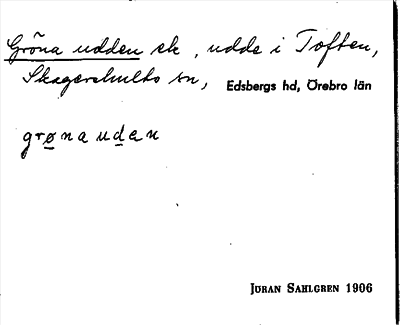 Gröna udden ek , udde i Toften,
Skagershults sn, Edsbergs hd, Örebro län
grøna uden
JÖRAN SAHLGREN 1906